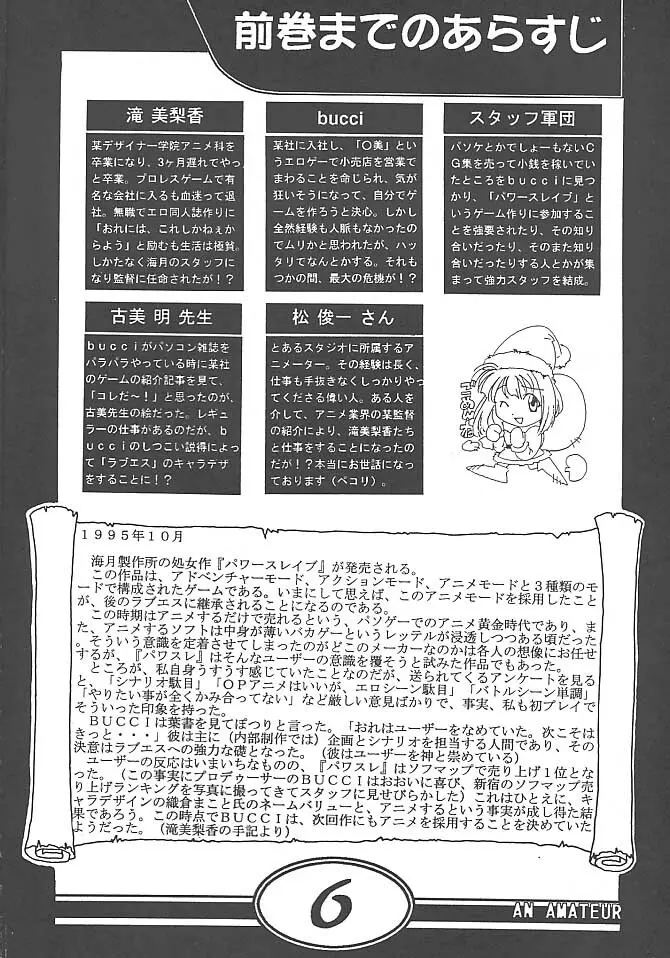 前巻までのあらすじ
滝 美梨香
某デザイナー学院アニメ科を
卒業になり、3ヶ月遅れてやっ
と卒業。プロレスゲームで有
名な会社に入るも血迷って退
社。無職でエロ同人誌作りに
「おれには、これしかねぇか
らよう」と励むも生活は極貧。
しかたなく海月のスタッフに
なり監督に任命されたが！？
bucci
某社に入社し、「〇美」とい
うエロゲーで小売店を営業で
まわることを命じられ、気が
狂いそうになって、自分でゲ
ームを作ろうと決心。しかし
全然経験も人脈もなかったの
でムリかと思われたが、ハッ
タリでなんとかする。それも
つかの間、最大の危機が！？
スタッフ軍団
パソケとかでしょーもないＣ
Ｇ集を売って小銭を稼いでい
たところをｂｕｃｃｉに見つ
かり、「パワースレイブ」と
いうゲーム作りに参加するこ
とを強要されたり、その知り
合いだったり、そのまた知り
合いだったりする人とかが集
まって強力スタッフを結成。
古美 明 先生
ｂｕｃｃｉがパソコン雑誌を
パラパラやっている時に某社
のゲームの紹介記事を見て、
「コレだ〜！」と思ったのが、
古美先生の絵だった。レギュ
ラーの仕事があるのだが、ｂ
ｕｃｃｉのしつこい説得によっ
て「ラブエス」のキャラデザ
をすることに！？
松 俊一 さん
とあるスタジオに所属するア
ニメーター。その経験は長く、
仕事も手抜きなくしっかりやっ
てくださる偉い人。ある人を
介して、アニメ業界の某監督
の紹介により、滝美梨香たち
と仕事をすることになったの
だが！？本当にお世話になっ
ております（ペコリ）。
１９９５年１０月
海月製作所の処女作『パワースレイブ』が発売される。
この作品は、アドベンチャーモード、アクションモード、アニメモードと３種類のモ
ードで構成されたゲームである。いまにして思えば、このアニメモードを採用したこと
が、後のラブエスに継承されることになるのである。
この時期はアニメするだけで売れるという、パソゲーでのアニメ黄金時代であり、ま
た、アニメするソフトは中身が薄いバカゲーというレッテルが浸透しつつある頃だった
。そういう意識を定着させてしまったのがどこのメーカーなのかは各人の想像にお任せ
するが、『パワスレ』はそんなユーザーの意識を覆そうと試みた作品でもあった。
ところが、私自身うすうす感じていたことなのだが、送られてくるアンケートを見る
と、「シナリオ駄目」「ＯＰアニメはいいが、エロシーン駄目」「バトルシーン単調」
「やりたい事が全くかみ合ってない」など厳しい意見ばかりで、事実、私も初プレイで
そういった印象を持った。
ＢＵＣＣＩは葉書を見てぽつりと言った。「おれはユーザーをなめていた。次こそは
きっと・・・」彼は主に（内部制作では）企画とシナリオを担当する人間であり、その
決意はラブエスへの強力な礎となった。（彼はユーザーを神と崇めている）
ユーザーの反応はいまいちなものの、『パワスレ』はソフマップで売り上げ１位とな
った。（この事実にプロデゥーサーのＢＵＣＣＩはおおいに喜び、新宿のソフマップ売
り上げランキングを写真に撮ってきてスタッフに見せびらかした）これはひとえに、キ
ャラデザインの織倉まこと氏のネームバリューと、アニメするという事実が成し得た結
果であろう。この時点でＢＵＣＣＩは、次回作にもアニメを採用することを決めていた
ようだった。（滝美梨香の手記より）
6
AN AMATEUR